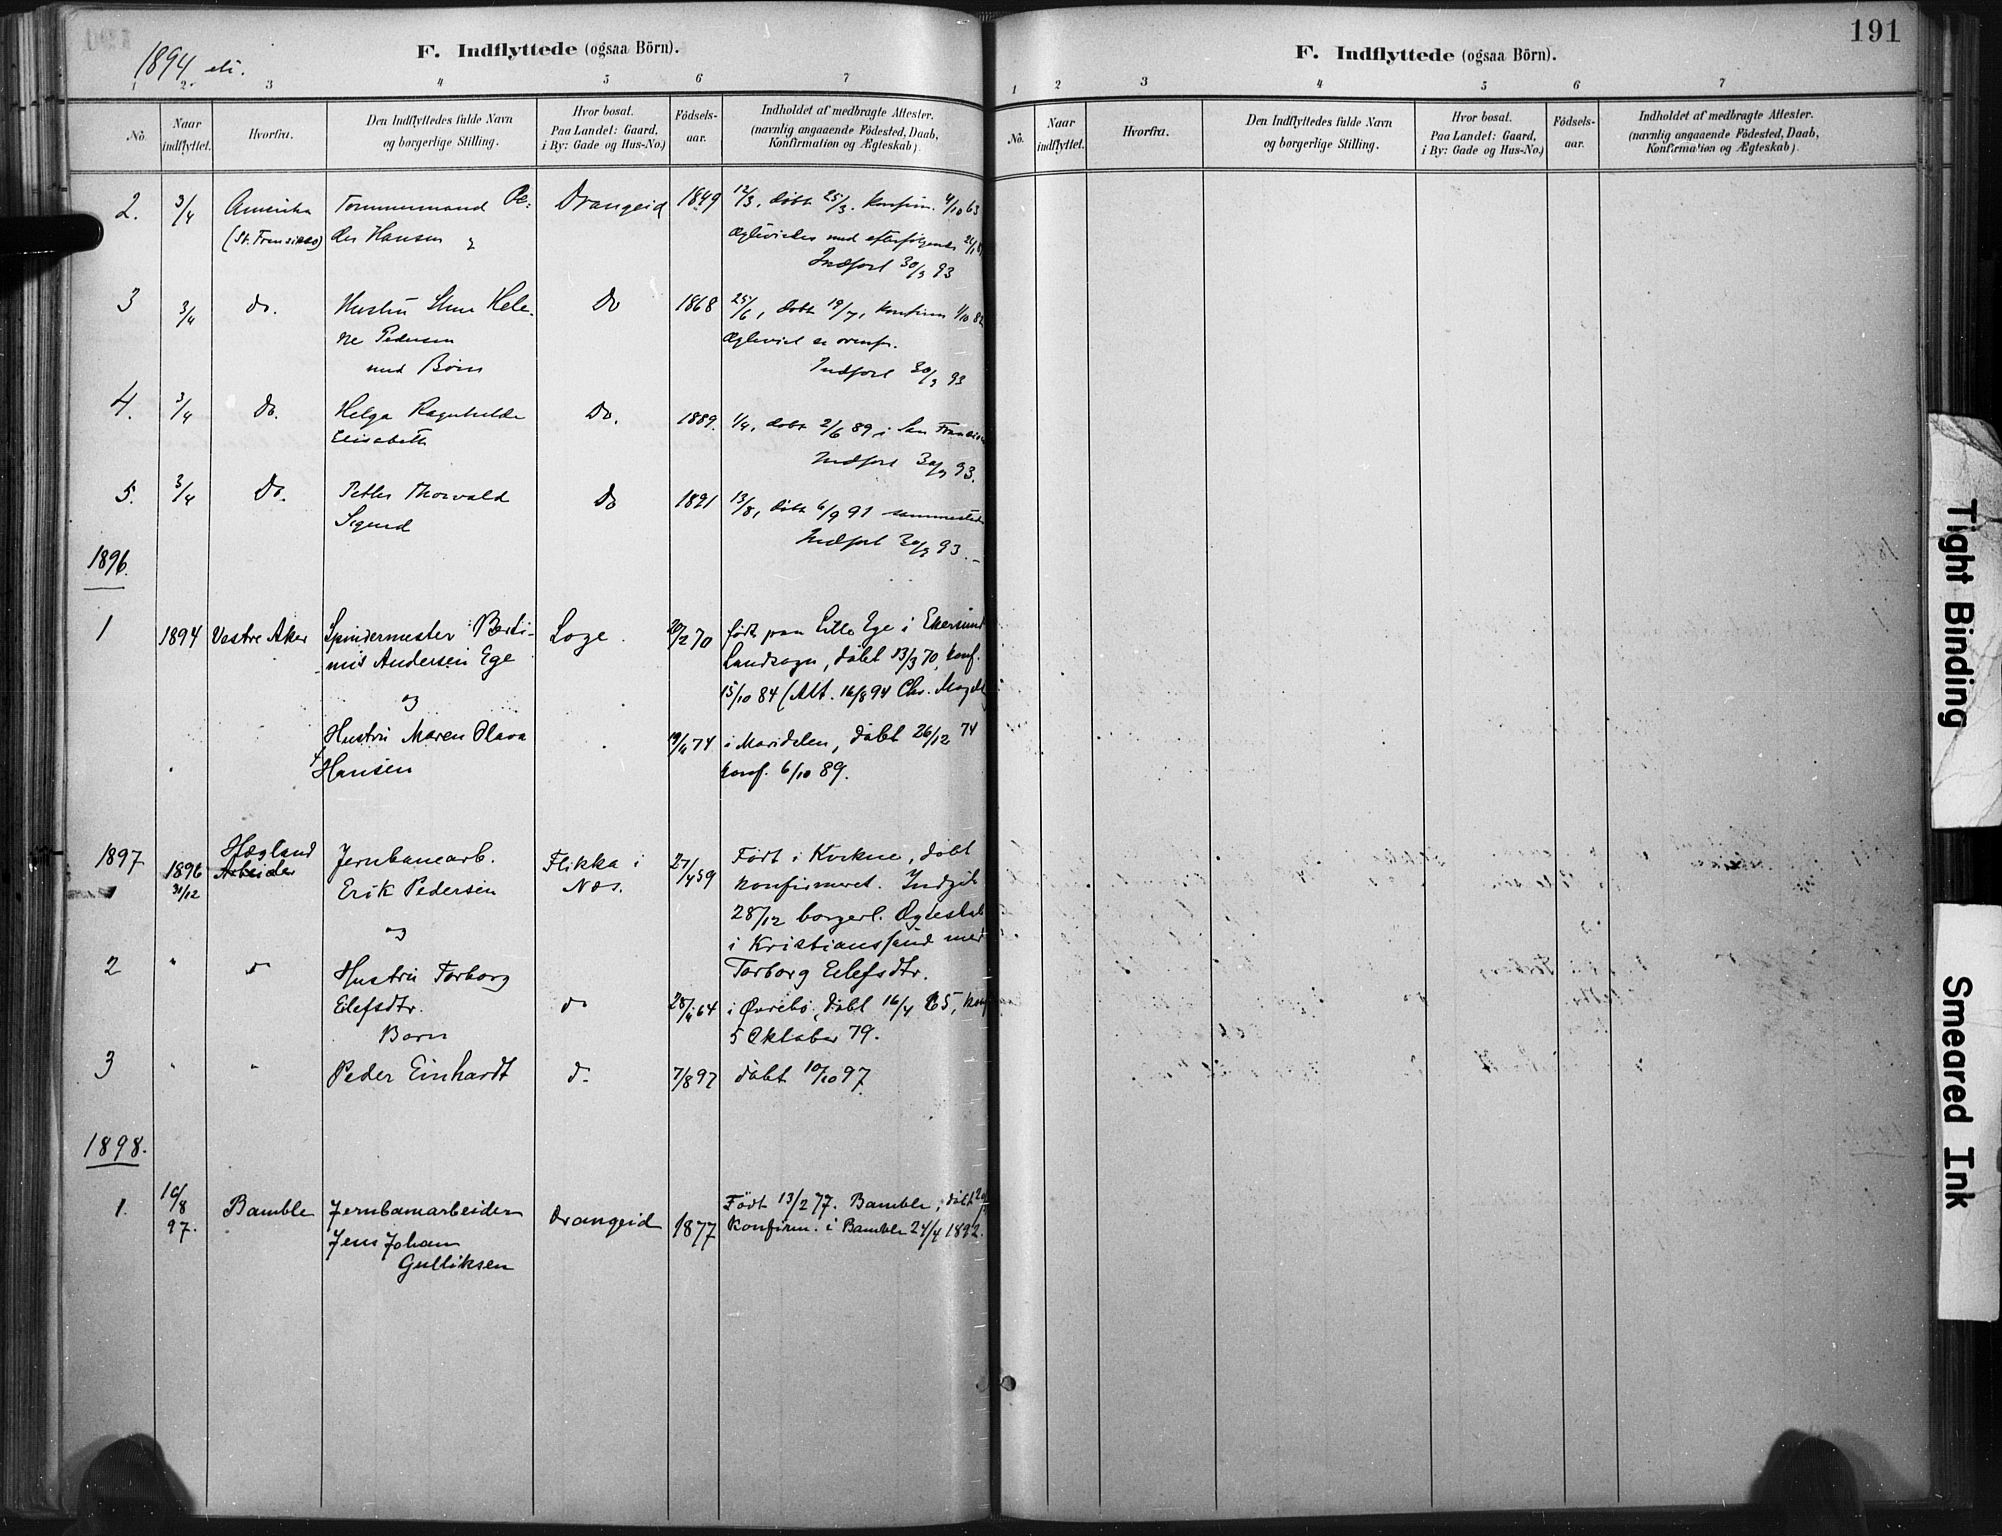 1894
F. Indflyttede (ogsaa Börn).
1 2. 3 4 5 6 7
No.
Naar indflyttet.
Hvorfra.
Den Indflyttedes fulde Navn og borgerlige Stilling.
Hvor bosat.
Paa Landet: Gaard,
i By: Gade og Hus-No.)
Födsels-aar.
Indholdet af medbragte Attester.
(navnlig angaaende Födested, Daab,
Konfirmation og Ægteskab).
2. 3/4 Amerika Tømmermand Pe: Drangeid 1849 12/3, døbt 25/3. konfirm. 4/10 63
der Hansen
Indført 30/3 93
3 3/4 do. Hustru Hele- Do 1868 25/6, døbt 19/7, konfirm 1/10 82
ne Pedersen
med Børn
Indført 30/3 93
4. 3/4 Do. Helga Ragnhilde Do. 1889. 1/4, døbt 2/6 89 i San
Elisabeth
Indført 30/3 93.
5. 3/4 Do. Petter Thorvald Do 1891 13/8, døbt 6/9 91
Sigurd
Indført 30/3 93.
1896.
1 1894 Vestre Aker Spindermester Berti- Loge 20/2 70 født paa Lille Ege i Ekersund
nius Andersen Ege Landsogn, døbt 13/3 70, konf.
og 15/10 84 (Att. 16/8 94 Chr.
Hustru Maren Olava 19/4 74 i Maridalen, døbt 26/12 74
Hansen konf. 6/10 89.
1897 1896 Hægland Jernbanearb. Flikka i 27/4 59 Født i Kvikne, døbt
31/12 Arbeider Erik Pedersen Næs. konfirmeret. Indgik
og 28/12 borgerl. Ægteskab
i Kristianssand med
2 " d Hustru Torborg Torborg Eilefsdtr.
Eilefsdtr. d 28/4 64 i Øvrebø, døbt 16/4 65, konf
Barn 5 Oktober 79.
3 " " Peder Einhardt d. 7/8 97 døbt 10/10 97
1898.
1. 10/8 97. Bamble Jernbanearbeider Drangeid 1877 Født 13/2 77. Bamble, døbt
Jens Johan Konfirm. i Bamble 24/4 1892.
Gulliksen
191
F. Indflyttede (ogsaa Börn).
1 2 3 4 5 6 7
No.
Naar indflyttet.
Hvorfra.
Den Indflyttedes fulde Navn og borgerlige Stilling.
Hvor bosat.
Paa Landet: Gaard,
i By: Gade og Hus-No.)
Födsels-aar.
Indholdet af medbragte Attester.
(navnlig angaaende Födested, Daab,
Konfirmation og Ægteskab).
Tight Binding
Smeared Ink